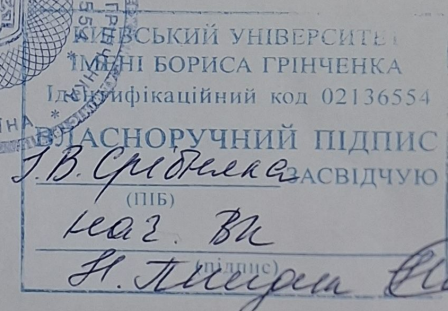 КИЇВСЬКИЙ УНІВЕРСИТЕТ
ІМЕНІ БОРИСА ГРІНЧЕНКА
Ідентифікаційний код 02136554
ВЛАСНОРУЧНИЙ ПІДПИС
І.В. Срібняка ЗАСВІДЧУЮ
(ПІБ)
нач. ВК
(підпис)
Н.